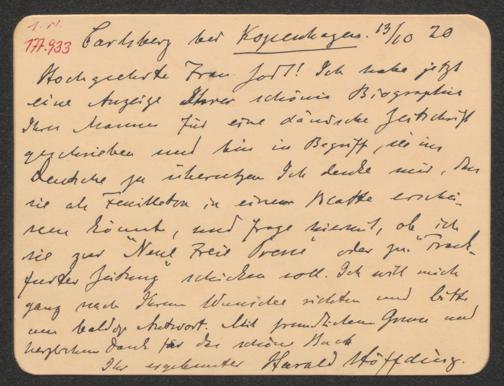 I. N.
177.933
Carlsberg bei Kopenhagen. 13/10 20
Hochgeehrte Frau Jodl! Ich habe jetzt
eine Anzeige Ihrer schönen Biographie
Ihres Mannes für eine dänische Zeitschrift
geschrieben und bin in Begriff, sie ins
Deutsche zu übersetzen. Ich denke mir, dass
sie als Feuilleton in einem Blatte erschei-
nen könnte, und frage hiermit, ob ich
sie zur "Neue Freie Presse" oder zu "Frank-
furter Zeitung" schicken soll. Ich will mich
ganz nach Ihrem Wunsche richten und bitte
um baldige Antwort. Mit freundlichem Gruss und
herzlichem Dank für das schöne Buch
Ihr ergebenster Harald Höffding.